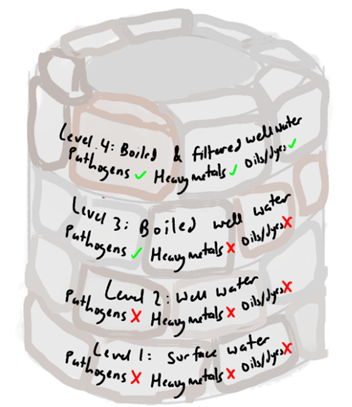 Level 4: Boiled & filtered well water
Pathogens ✓ Heavy metals ✓ Oils/dyes ✓
Level 3: Boiled well water
Pathogens ✓ Heavy metals X Oils/dyes X
Level 2: Well water
Pathogens X Heavy metals X Oils/dyes X
Level 1: Surface water
Pathogens X Heavy metals X Oils/dyes X